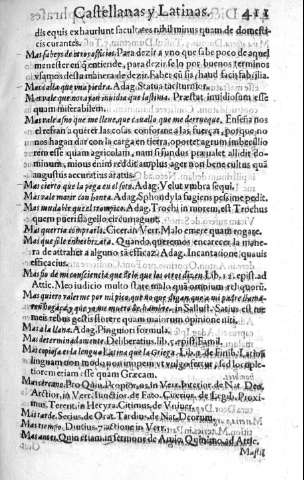 Castellanas y Latinas. 411
dis equis exhauriunt facultates nihil minus quam de domesti-
cis curantes.
Mas sabeys de otros officios. Para dezir a vno que sabe poco de aquel
menester en que entiende, para dezirselo por buenos terminos
vsamos desta manera de dezir. Faber quasuis, haud facis fabrilia.
Mas calla que vna piedra. Adag. Statua taciturnior.
Mas vale que nos ayan inuidia que lastima. Præstat inuidiosum esse
quam miserabilem.
Mas vale asno que me lleue, que cauallo que me derrueque. Enseña nos
el refran a querer las cosas conforme a las fuerças, porque no
nos hagan dar con la carga en tierra, oportet agrum imbecillio
rem esse quam agricolam, nam si fundus præualet allidet do-
minum, nouus enim reddit ager non bene cultus quã
augustus accuratius aratus.
Mas cierto que la pega en el soto. Adag. Velut vmbra sequi.
Mas vale morir con honra. Adag. pessime pedit.
Mas mudable que el trompico. Adag. Trochi in morem, est Trochus
quem pueri flagello circumagunt.
Mas querria comprarla. Cicer. in Verr. Malo emere quam rogare.
Mas que sile enhechizara. Quando queremos encarecer la mane-
ra de attraher a alguno es efficaz. Adag. Incantatione, quauis
efficacius.
Mas fio de mi consciencia que de lo que los otros dizen. Lib. 12. epist. ad
Attic. Meo iudicio multo stare malo quã omnium reliquorũ.
Mas quiero valerme por mi pico, que no que digan que a mi padre llama-
ron hidalgo, y que yo me muero de hambre. in Sallust. Satius est me
meis rebus gestis florere quam maiorum opinione niti.
Mas a la llana. Adag. Pinguiori formula.
Mas determinadamente. Deliberatius. lib. 15. epist. Famil.
Mas copiosa es la lengua Latina que la Griega. Lib. 1. de Finib. Latinã
linguam con modo, non inopem vt vulgo putant, sed locuple-
tiorem etiam esse quam Græcam.
Mas cercano. Pro Quin. Propior, in Verr. Interior de Nat. Deo.
Arctior. in Verr. Iunctior. de Fato. Curtius, de Legib. Proxi-
mus. Terent. in Hecyra. Citimus, de Vniuer.
Mas tarde. Serius, de Orat. Tardius, de Nat. Deorum.
Mas tiempo. Diutius, 7. actione in Verr.
Mas antes. Quin etiam in sermone de Amio, Quinimo, ad Attic.
Mas fil